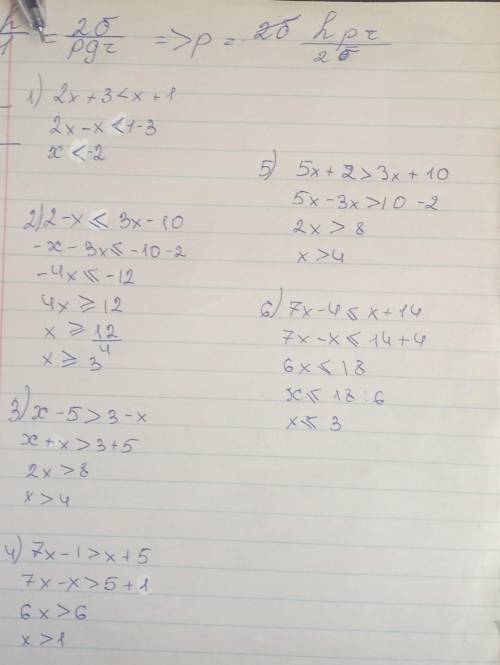 h/1 = 2σ/ρgr => ρ = 2σ hρr/2σ
1) 2x+3<x+1
2x-x<1-3
x<-2
2) 2-x⩽3x-10
-x-3x⩽-10-2
-4x⩽-12
4x⩾12
x⩾12/4
x⩾3
3) x-5>3-x
x+x>3+5
2x>8
x>4
4) 7x-1>x+5
7x-x>5+1
6x>6
x>1
5) 5x+2>3x+10
5x-3x>10-2
2x>8
x>4
6) 7x-4⩽x+14
7x-x⩽14+4
6x⩽18
x⩽18:6
x⩽3